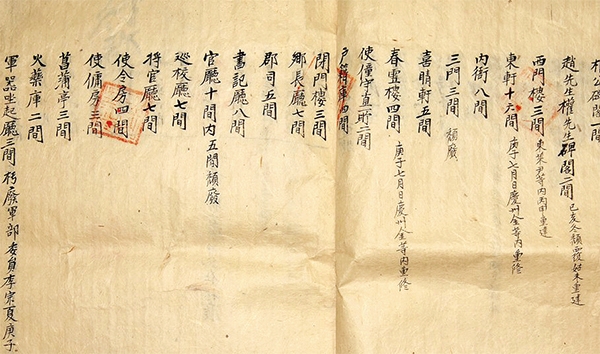 趙先生權先生碑閣二間 己亥冬頹
西門樓三間 東萊
東軒十六間 庚子七月日慶州金等內重修
內衙八間
三門三間 頹廢
喜晴軒五間
春雲樓四間 庚子七月日慶州金等內重修
使僮守直
閉門樓三間
鄉長廳七間
郡司五間
書記廳八間
官廳十間內五間頹廢
巡校廳七間
將官廳七間
使令房四間
使傭房三間
菖蒲亭三間
火藥庫二間
軍器坐起廳三間 朽廢軍部委員李宗夏庚子